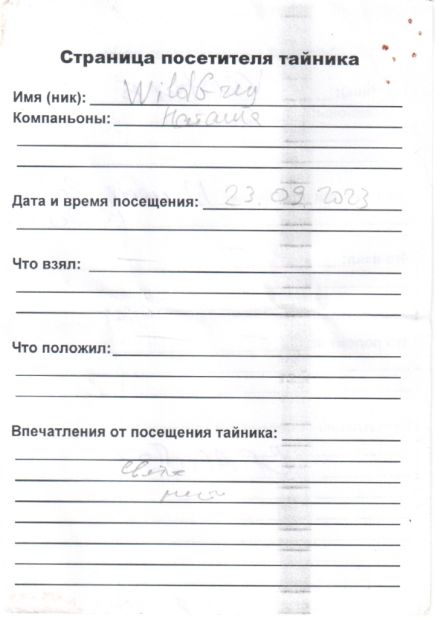 Страница посетителя тайника
Имя (ник): WildGrey
Компаньоны: Наташа
Дата и время посещения: 23.09.2023
Что взял:
Что положил:
Впечатления от посещения тайника: